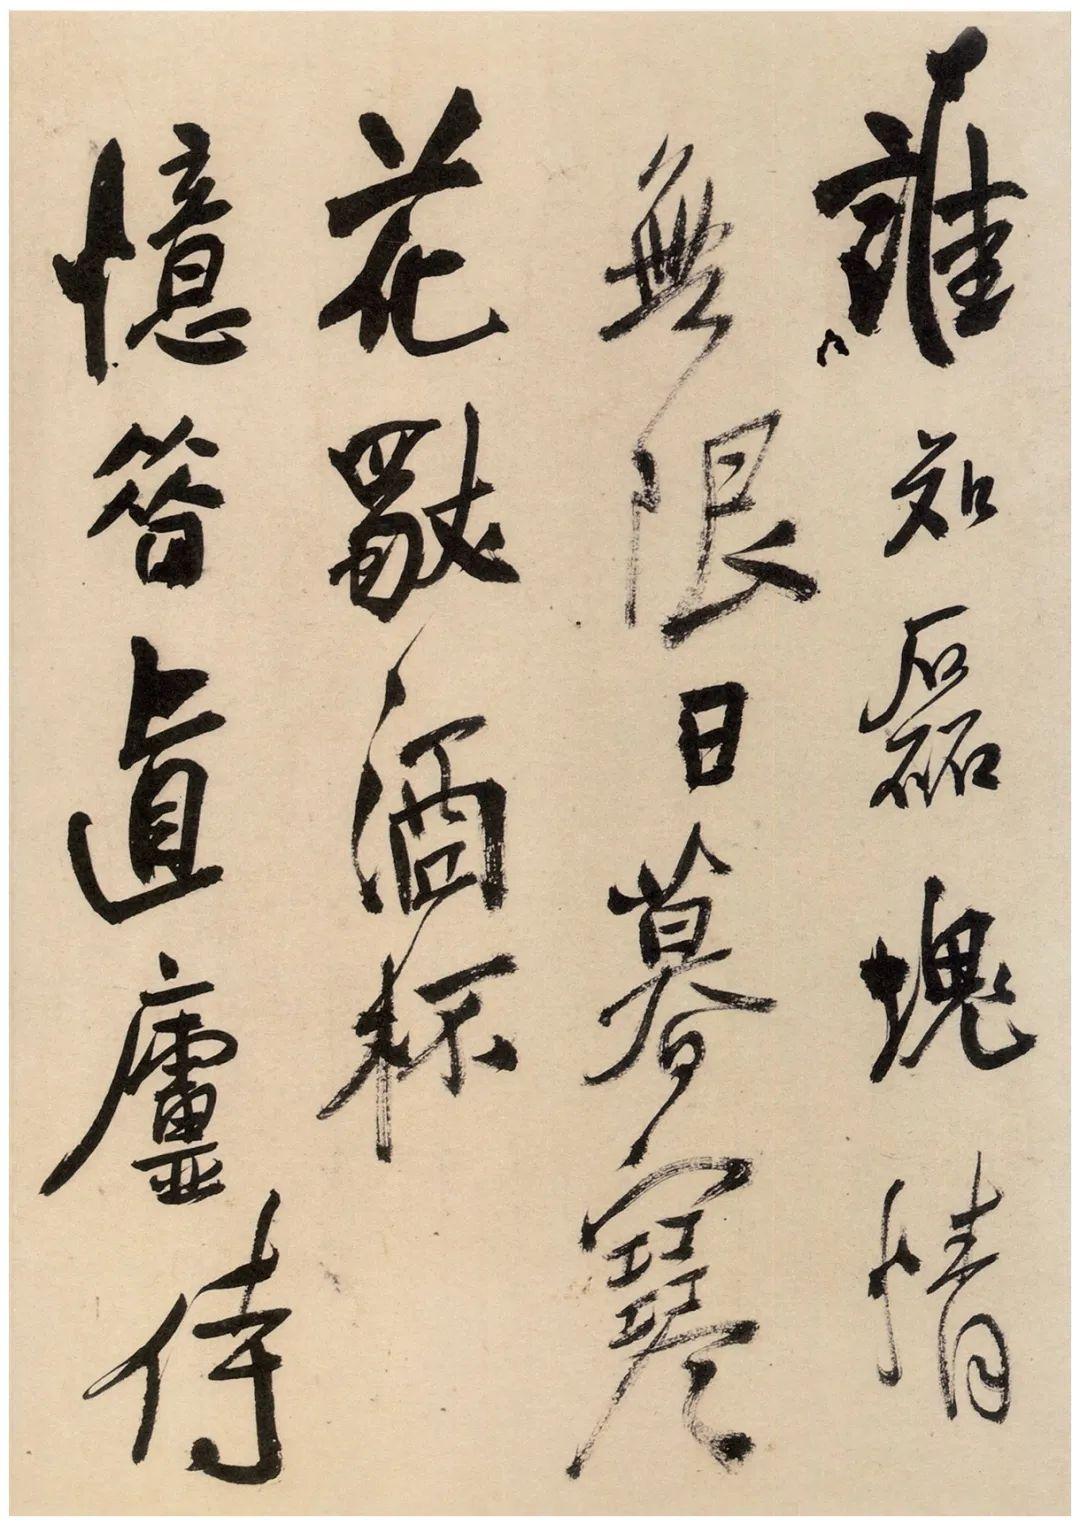 誰知磊塊情
無限日暮寒
花酒杯
憶昔直廬侍